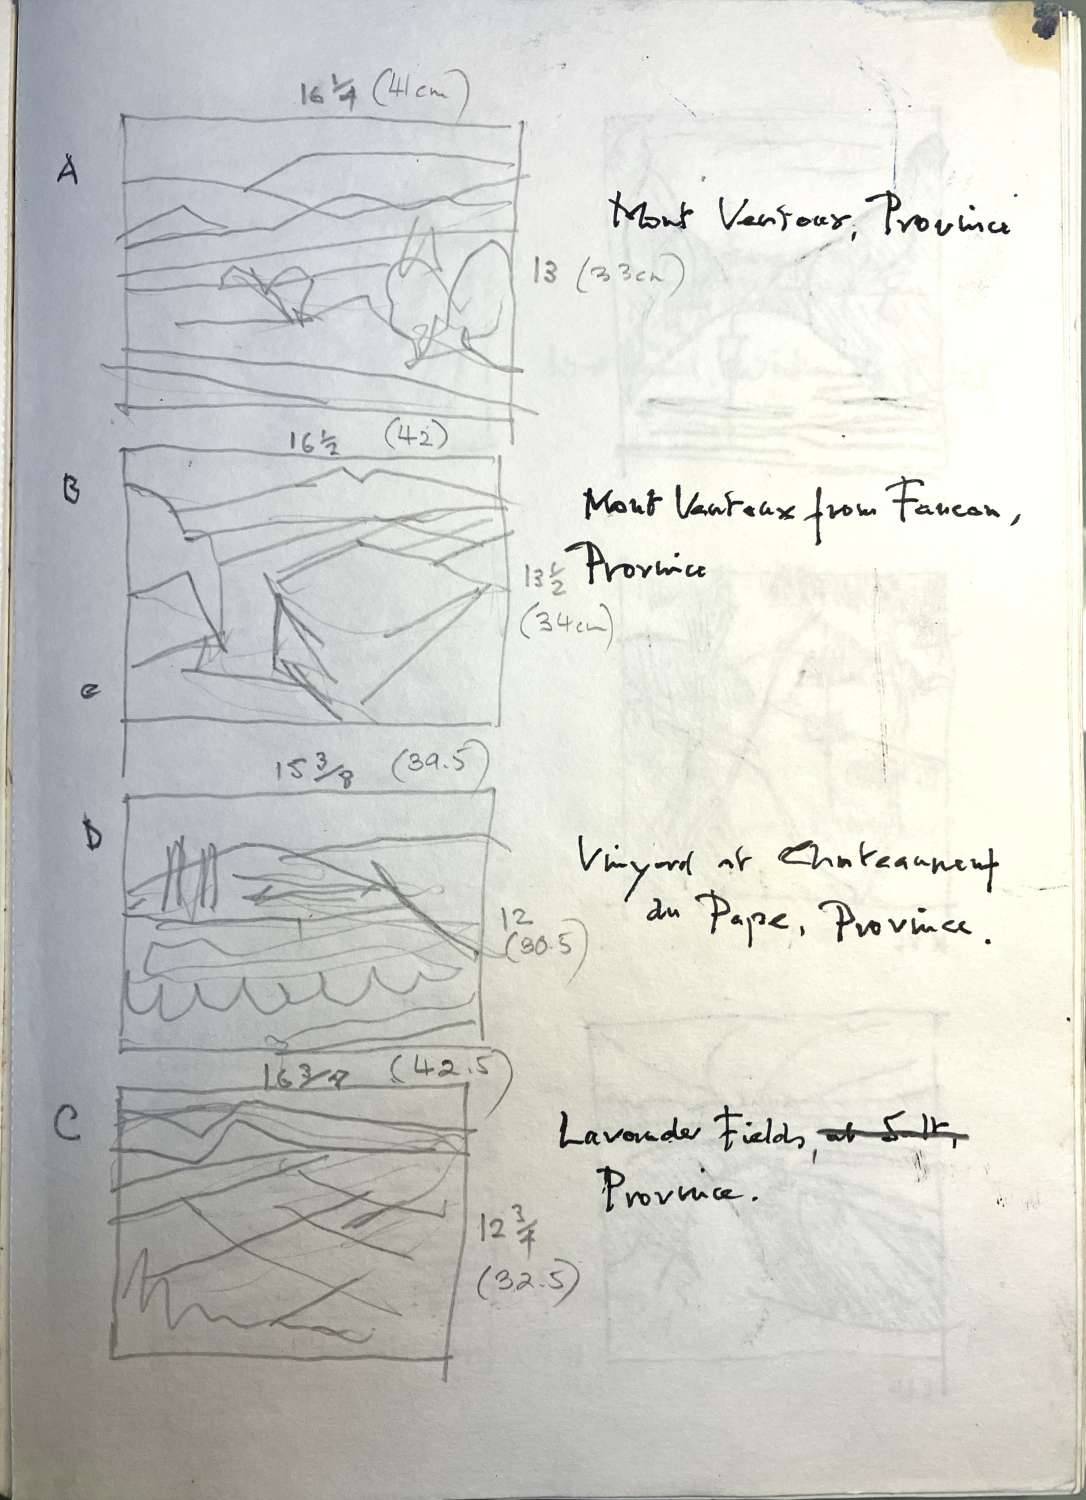 16 1/4 (41cm)
A
Mont Ventoux, Province
13 (33cm)
16 1/2 (42)
B
Mont Ventoux from Faucon,
13 1/2 Province
(34cm)
e
15 3/8 (39.5)
D
Vinyard at Chateauneuf
du Pape, Province.
12
(30.5)
16 3/4 (42.5)
C
Lavender Fields, at Sault,
Province.
12 3/4
(32.5)